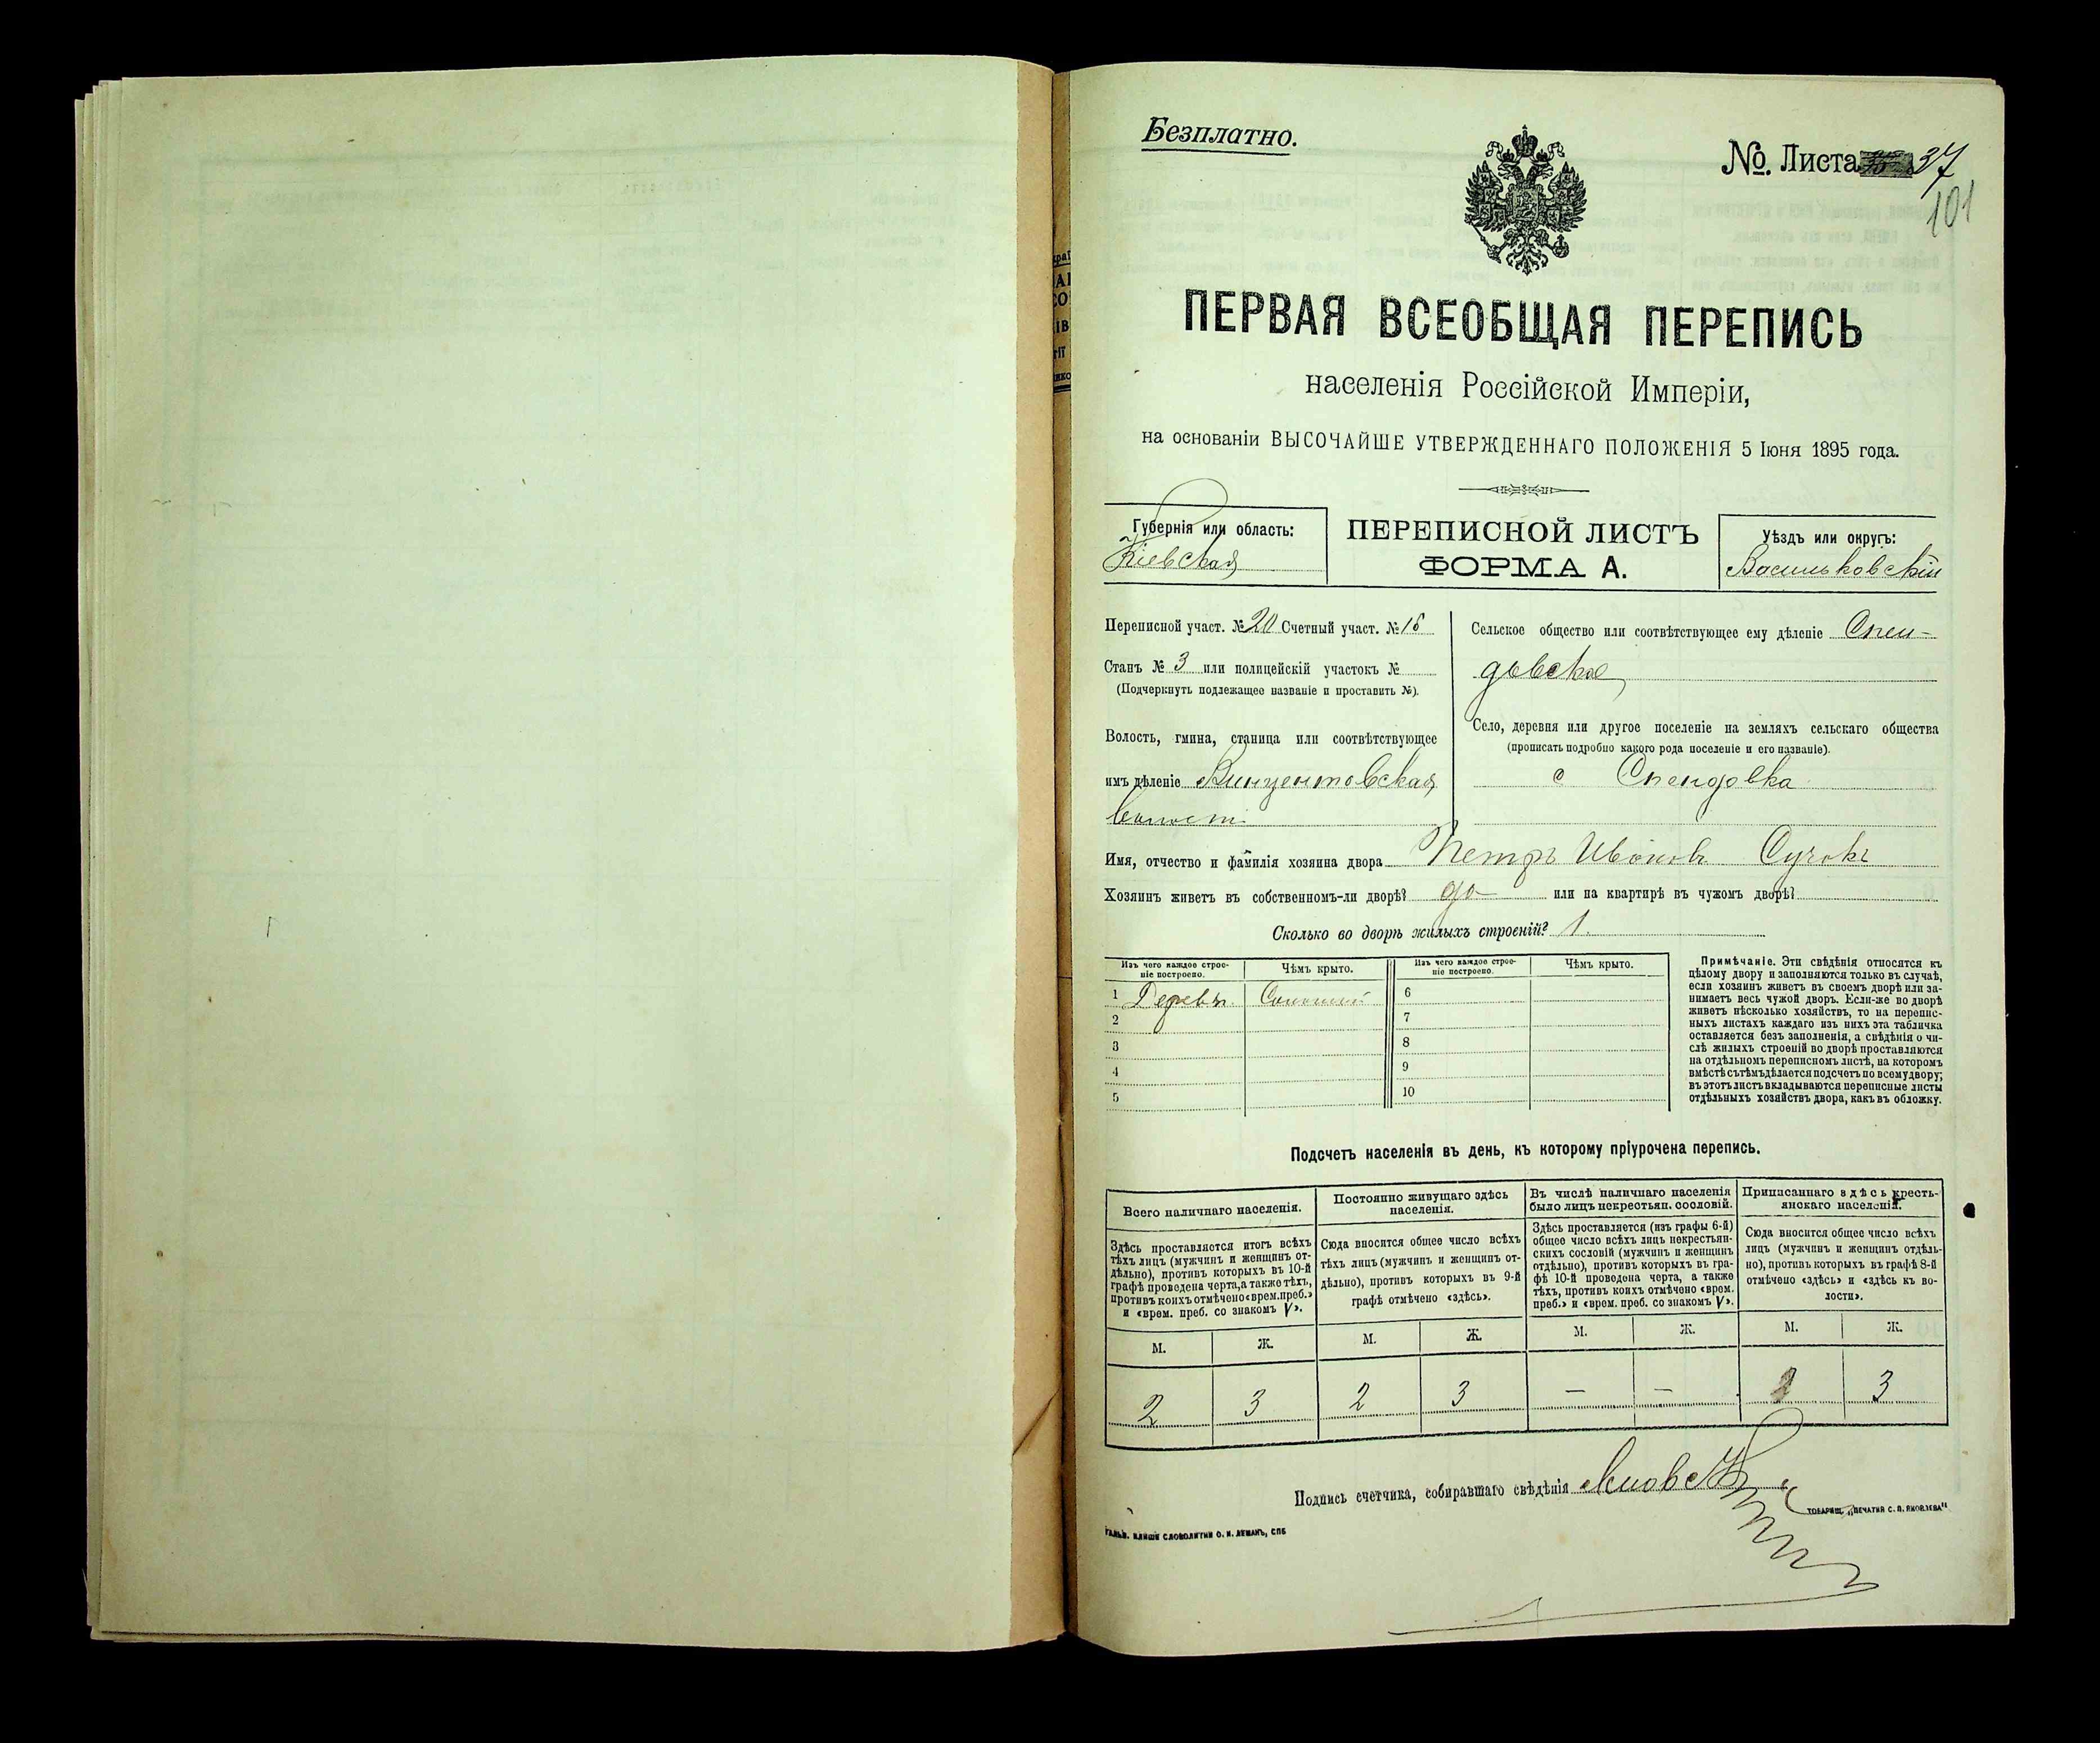 Безплатно.
№. Листа 37
101
ПЕРВАЯ ВСЕОБЩАЯ ПЕРЕПИСЬ
населенія Россійской Имперіи,
на основаніи ВЫСОЧАЙШЕ УТВЕРЖДЕННАГО ПОЛОЖЕНІЯ 5 Іюня 1895 года.
Губернія или область:
Кіевская
ПЕРЕПИСНОЙ ЛИСТЪ
ФОРМА А.
Уѣздъ или округъ:
Васильковскій
Переписной участ. № 20 Счетный участ. № 16
Станъ № 3 или полицейскій участокъ №
(Подчеркнуть подлежащее названіе и проставить №).
Волость, гмина, станица или соотвѣтствующее
имъ дѣленіе Винцентовская
волость
Сельское общество или соотвѣтствующее ему дѣленіе Спен-
довское
Село, деревня или другое поселеніе на земляхъ сельскаго общества
(прописать подробно какого рода поселеніе и его названіе).
с Спендовка
Имя, отчество и фамилія хозяина двора Петръ Ивановъ Сучокъ
Хозяинъ живетъ въ собственномъ-ли дворѣ? да или на квартирѣ въ чужомъ дворѣ?
Сколько во дворѣ жилыхъ строеній? 1.
Изъ чего каждое строе-
ніе построено.
Чѣмъ крыто.
Изъ чего каждое строе-
ніе построено.
Чѣмъ крыто.
1 Деревян. Соломой 6
2 7
3 8
4 9
5 10
Примѣчаніе. Эти свѣдѣнія относятся къ
цѣлому двору и заполняются только въ случаѣ,
если хозяинъ живетъ въ своемъ дворѣ или за-
нимаетъ весь чужой дворъ. Если-же во дворѣ
живетъ нѣсколько хозяйствъ, то на перепис-
ныхъ листахъ каждаго изъ нихъ эта табличка
оставляется безъ заполненія, а свѣдѣнія о чи-
слѣ жилыхъ строеній во дворѣ проставляются
на отдѣльномъ переписномъ листѣ, на которомъ
вмѣстѣ съ тѣмъ дѣлается подсчетъ по всему двору;
въ этотъ листъ вкладываются переписные листы
отдѣльныхъ хозяйствъ двора, какъ въ обложку.
Подсчетъ населенія въ день, къ которому пріурочена перепись.
Всего наличнаго населенія.
Здѣсь проставляется итогъ всѣхъ
тѣхъ лицъ (мужчинъ и женщинъ от-
дѣльно), противъ которыхъ въ 10-й
графѣ проведена черта, а также тѣхъ,
противъ коихъ отмѣчено «врем. преб.»
и «врем. преб. со знакомъ V».
Постоянно живущаго здѣсь
населенія.
Сюда вносится общее число всѣхъ
тѣхъ лицъ (мужчинъ и женщинъ от-
дѣльно), противъ которыхъ въ 9-й
графѣ отмѣчено «здѣсь».
Въ числѣ наличнаго населенія
было лицъ некрестьян. сословій.
Здѣсь проставляется (изъ графы 6-й)
общее число всѣхъ лицъ некрестьян-
скихъ сословій (мужчинъ и женщинъ
отдѣльно), противъ которыхъ въ гра-
фѣ 10-й проведена черта, а также
тѣхъ, противъ коихъ отмѣчено «врем.
преб.» и «врем. преб. со знакомъ V».
Приписаннаго здѣсь кресть-
янскаго населенія.
Сюда вносится общее число всѣхъ
лицъ (мужчинъ и женщинъ отдѣль-
но), противъ которыхъ въ графѣ 8-й
отмѣчено «здѣсь» и «здѣсь къ во-
лости».
М. Ж. М. Ж. М. Ж. М. Ж.
2 3 2 3 — — 2 3
Подпись счетчика, собиравшаго свѣдѣнія
ГАЛЬВ. КЛИШЕ СЛОВОЛИТНИ О. И. ЛЕМАНЪ, СПБ
ТОВАРИЩ. „ПЕЧАТНЯ С. П. ЯКОВЛЕВА"